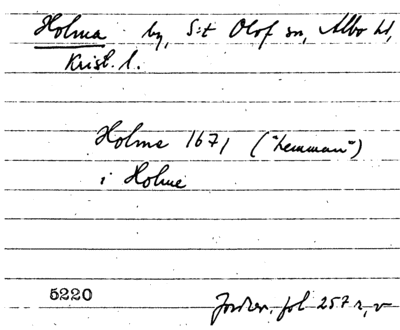 Holma by, S:t Olof sn, Albo hd,
Krist. l.
Holma 1671 ("hemman")
i Holme
5220
Jordrev. fol 257 r, v